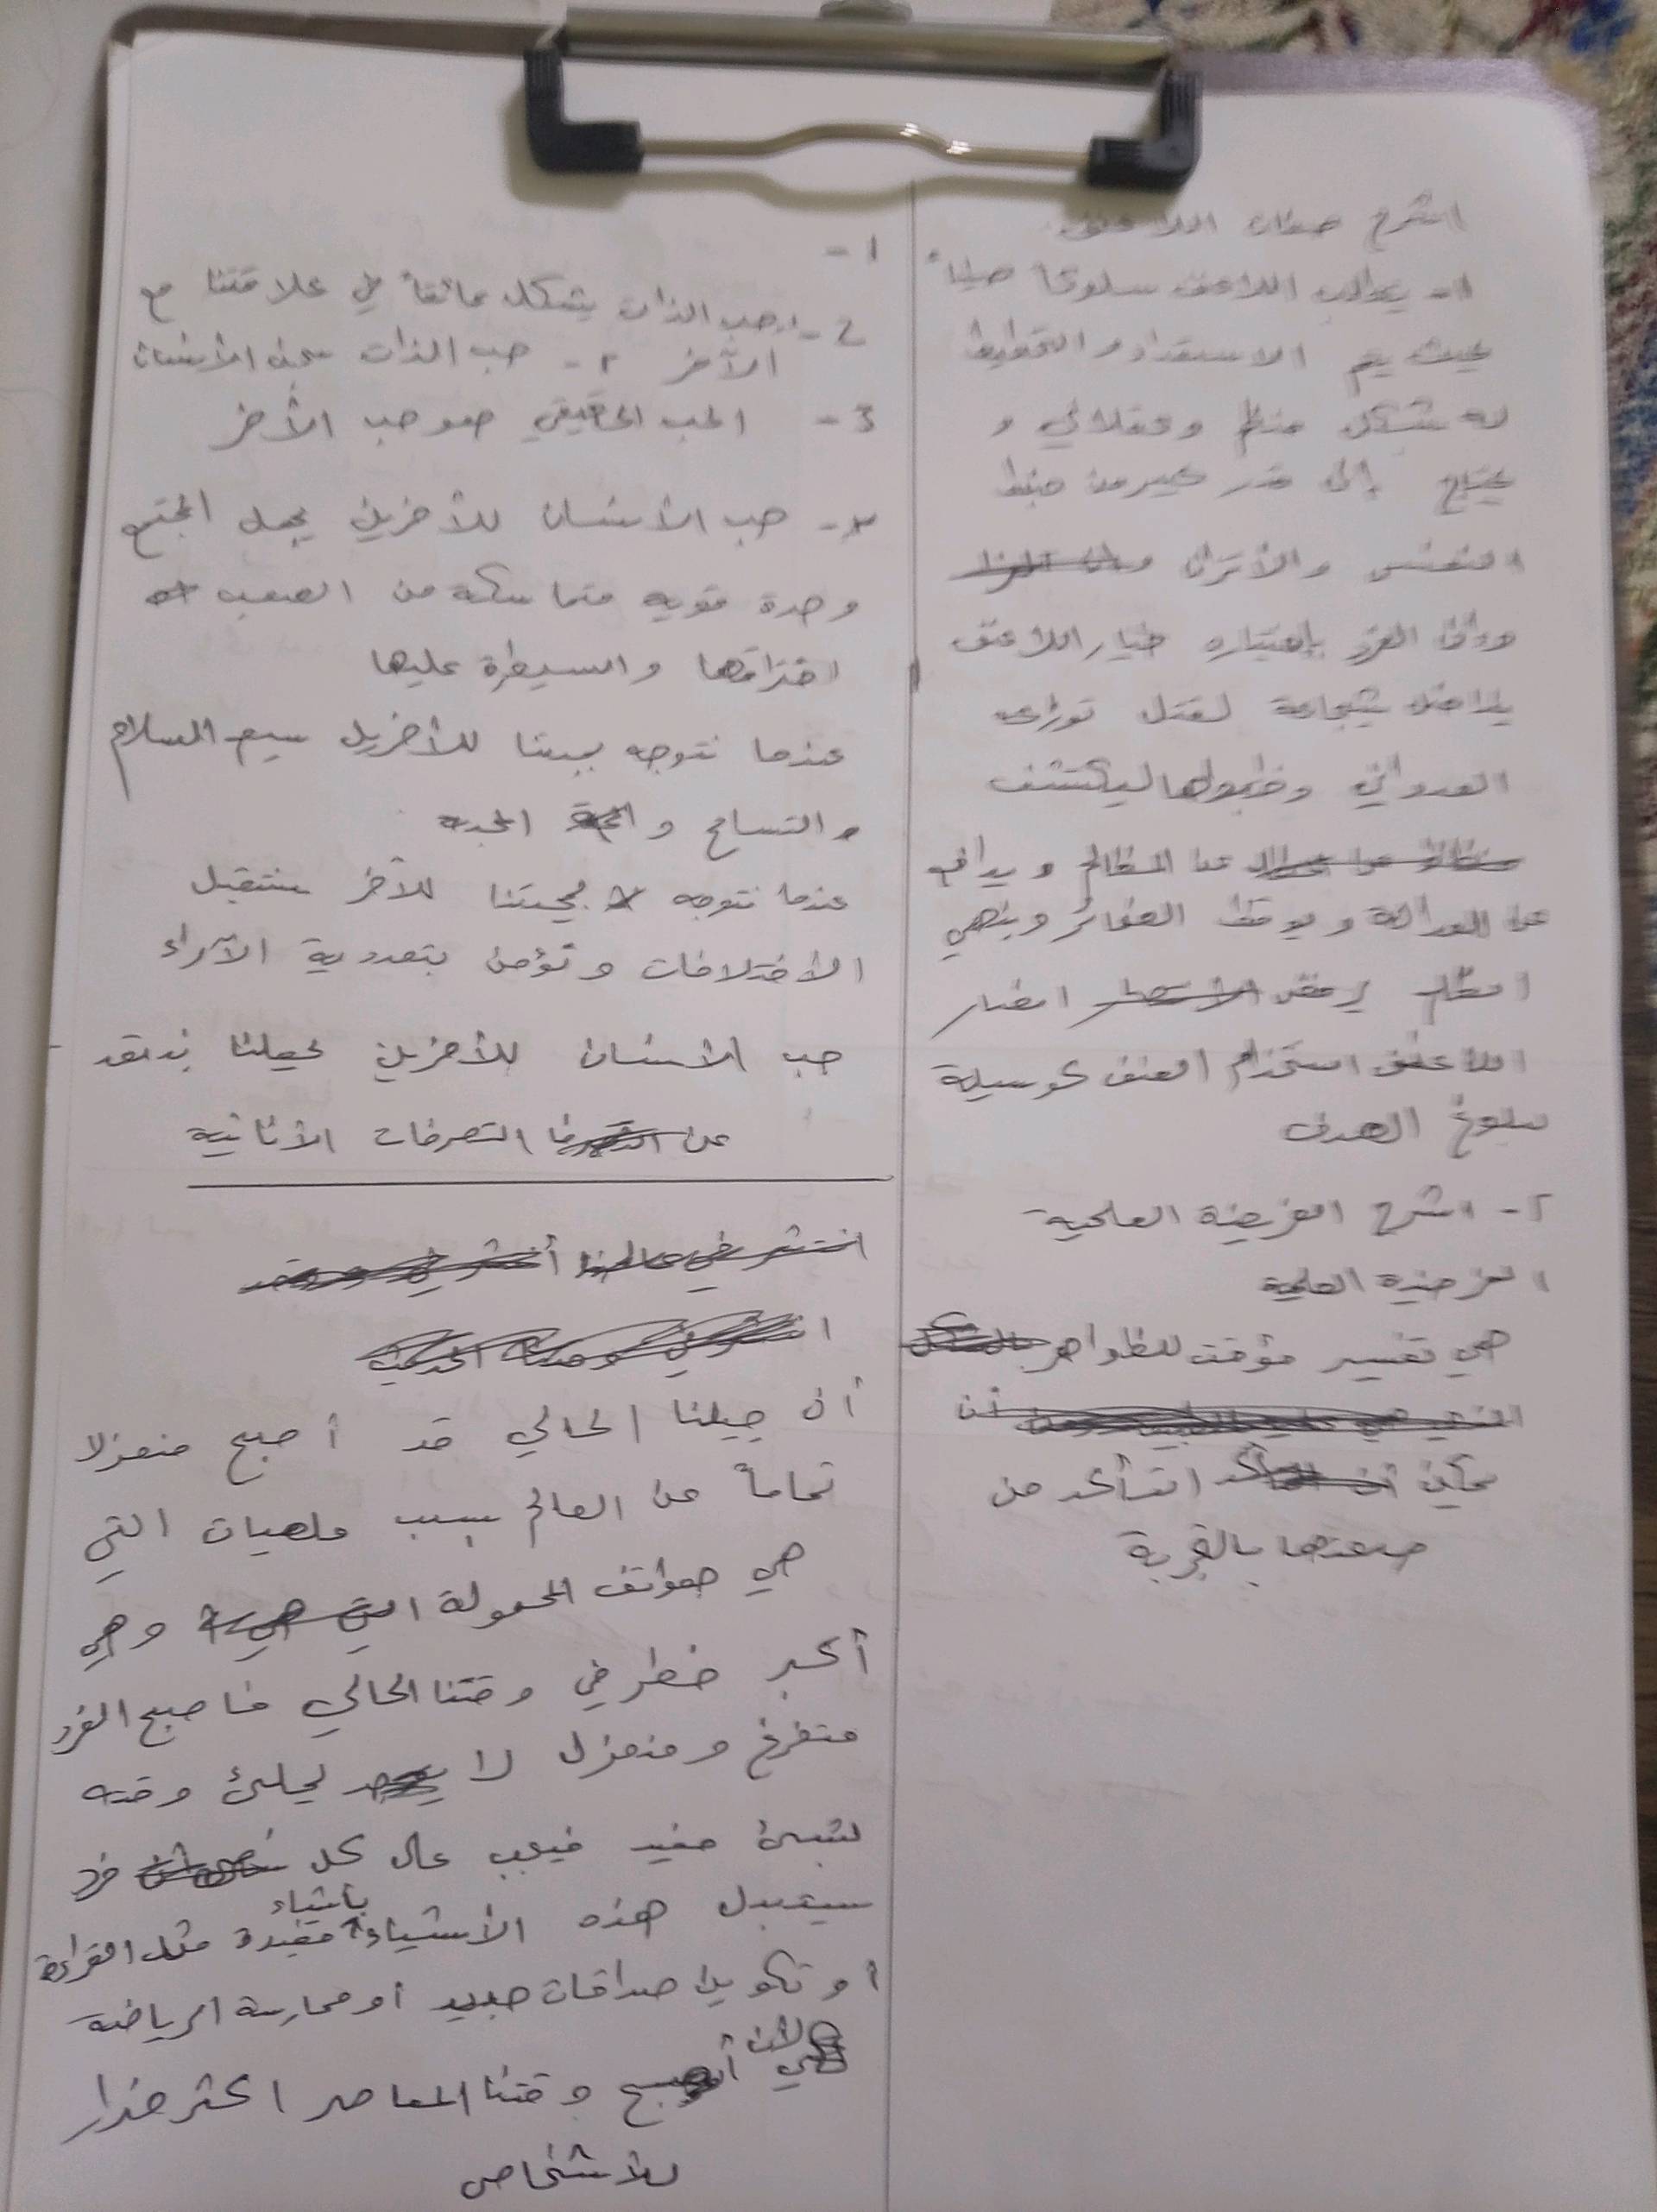 اشرح صفات اللاعنف
1- يطالب اللاعنف سلوكاً صلباً
بحيث يتم الاستعداد والتخطيط
له بشكل منظم وعقلاني و
يحتاج إلى قدر كبير من ضبط
النفس والأتزان
وأن الفرد بإختياره خيار اللاعنف
يناضل بشجاعة لقتل نوازعه
العدواني وخابولها ليكتشف
عن المظالم ويدافع
عن العدالة ويوقظ الضمائر وينهي
الظلم يرفض انصار
اللاعنف استخدام العنف كوسيلة
لبلوغ الهدف
2- اشرح الفرضية العلمية
الفرضية العلمية
هي تفسير مؤقت للظواهر
يمكن التأكد من
صحتها بالتجربة
1-
2- 1- حب الذات يشكل عائقاً في علاقتنا مع
الآخر 2- حب الذات سجن الأنسان
3- الحب الحقيقي هو حب الأخر
4- حب الأنسان للأخرين يجعل المجتمع
وحدة قويه متماسكه من الصعب
اختراقها والسيطرة عليها
عندما نتوجه بحبنا للأخرين سيعم السلام
والتسامح و المحبه
عندما نتوجه بمحبتنا للآخر سنتقبل
الأختلافات ونؤمن بتعددية الآراء
حب الأنسان للأخرين يجعلنا نبتعد
عن التصرفات الأنانية
أن جيلنا الحالي قد أصبح منعزلا
تماماً عن العالم بسبب ملهيات التي
هي هواتف المحمولة وهي
أكبر خطر في وقتنا الحالي فأصبح الفرد
متفرغ ومنعزل لا يملئ وقته
بشيئ مفيد فيجب على كل فرد
سيتبدل هذه الأشياء بأشياء مفيدة مثل القراءة
أو تكوين صداقات جديد أو ممارسة الرياضة
لأن أصبح وقتنا المعاصر اكثر ضرار
للأشخاص